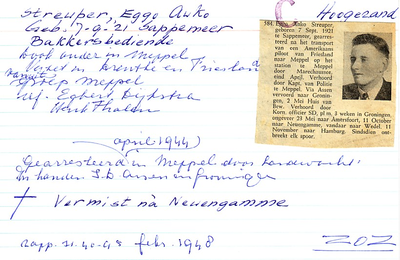 Streuper, Eggo Auko
Hoogezand
Geb. 7-9-21 Sappemeer
Bakkersbediende
Dook onder in Meppel
in Drenthe en Friesland
vanuit
Meppel
Egbert Dijkstra
april 1944)
Gearresteerd in Meppel door Landwacht
In handen S.D. Assen en Groningen
† Vermist na Neuengamme
Rapp. 21.40-45 febr. 1948
ZOZ
584. Eggo Auko Streuper,
geboren: 7 Sept. 1921
te Sappemeer, gearresteerd
na het transport
van een Amerikaans
piloot van Friesland
naar Meppel op het
station te Meppel
door Marechaussee,
eind April. Verhoord
door Kapt. van Politie
te Meppel. Via Assen
vervoerd naar Groningen,
2 Mei Huis van
Bew. Verhoord door
Korn. officier SD, pl.m. 3 weken in Groningen,
ongeveer 23 Mei naar Amersfoort, 11 October
naar Neuengamme, vandaar naar Wedel. 11
November naar Hamburg. Sindsdien ontbreekt
elk spoor.